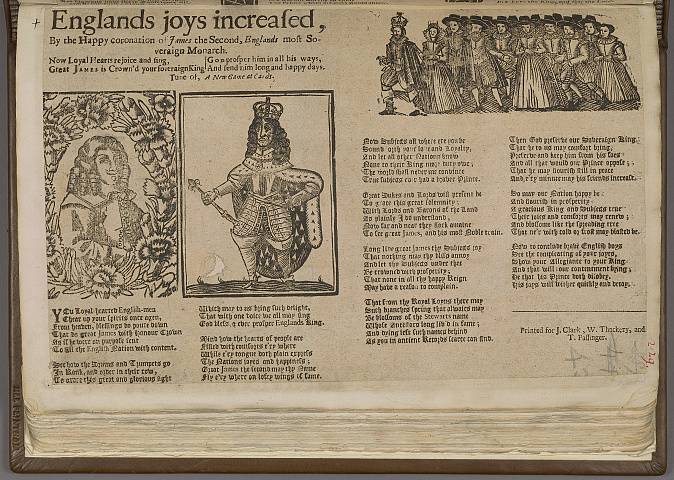 Englands joys increased,
By the Happy coronation of James the Second, Englands most So-
veraign Monarch.
Now Loyal Hearts rejoice and sing,
Great JAMES is Crown'd your soveraign King
God prosper him in all his ways,
And send him long and happy days.
Tune of, A New Game at Cards.
YOu Loyal hearted English-men
Chear up your spirits once agen,
From heaven, blessings do poure down
That do great James with honour Crown
As if he were on purpose sent
To fill the English Nation with content.
See how the Drums and Trumpets go
In Rank, and order in their row,
To grace this great and glorious sight
Which may to us bring such delight,
That with one voice we all may sing
God bless, & ever prosper Englands King.
Mind how the hearts of people are
Filled with comforts e'ry where
While e'ry tongue doth plain express
The Nations joyes and happiness;
Great James the second may thy Name
Fly e'ry where on lofty wings of fame.
Now Subjects all where ere you be
Sound forth your love and Loyalty,
And let all other Nations know
None to their King more duty owe;
The world shall never me convince
True subjects ere had a braver Prince.
Great Dukes and Lords will present be
To grace this great solemnity;
With Lords and Barons of the Land
As plainly I do understand,
Now far and near they flock amaine
To see great James, and his most Noble train.
Long live great James thy Subjects joy
That nothing may thy bliss annoy
And let thy Subjects under thee
Be crowned with prosperity;
That none in all thy happy Reign
May have a reason to complain.
That from thy Royal Loyns there may
Such branches spring that alwaies may
Be blossoms of the Stewarts name
Whose Ancestors long liv'd in fame;
And dying left such names behind
As you in ancient Records scarce can find.
Then God preserve our Soveraign King,
That he to us may comfort bring,
Preserve and keep him from his foes
And all that would our Prince oppose;
That he may flourish still in peace
And e'ry minute may his friends increase.
So may our Nation happy be
And flourish in prosperity
A glorious King and Subjects true
Their joies and comforts may renew;
And blossome like the spreading tree
That ne'r with cold or frost may blasted be.
Now to conclude brave English boys
See the compleating of your joyes,
Show your Allegiance to your King
And that will our contentment bring;
So that his Prince doth
his joys will wither quickly and decay.
Printed for J. Clark, W. Thackery, and
T. Passinger.